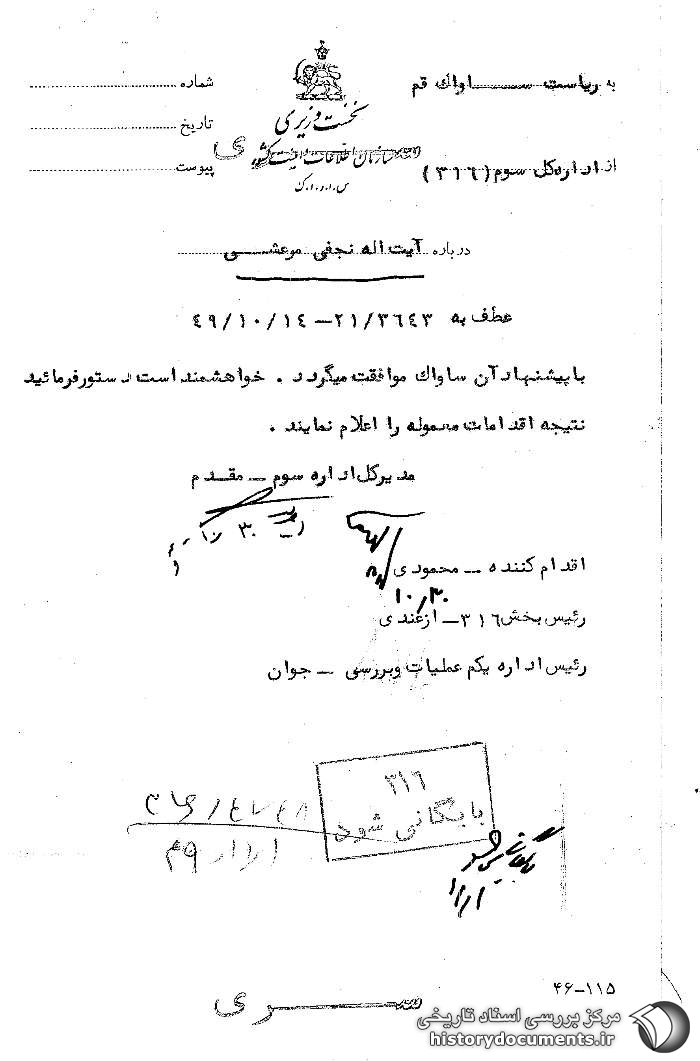 به ریاست ساواك قم
شماره
نخست وزیری
تاریخ
سازمان اطلاعات و امنیت کشور
س.ا.و.ا.ك
از اداره کل سوم (۳۱۶)
پیوست
درباره آیت اله نجفی مرعشی
عطف به ۲۱/۳۶۴۳–۴۹/۱۰/۱۴
با پیشنهاد آن ساواك موافقت میگردد . خواهشمند است دستور فرمائید
نتیجه اقدامات معموله را اعلام نمایند .
مدیرکل اداره سوم – مقدم
اقدام کننده – محمودی
۱۰/۳۰
رئیس بخش ۳۱۶ – ازغندی
رئیس اداره یکم عملیات و بررسی – جوان
۳۱۶
بایگانی شود
۴۶–۱۱۵
سری
مرکز بررسی اسناد تاریخی
historydocuments.ir